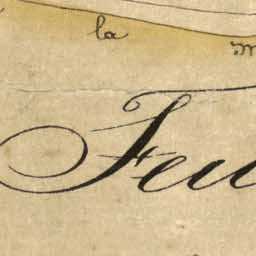 la
Feu